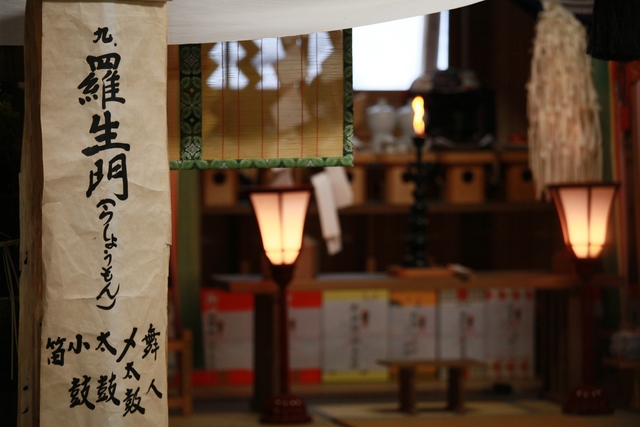 九、
羅生門
（らしょうもん）
舞人
〆太鼓
太鼓
小鼓
笛